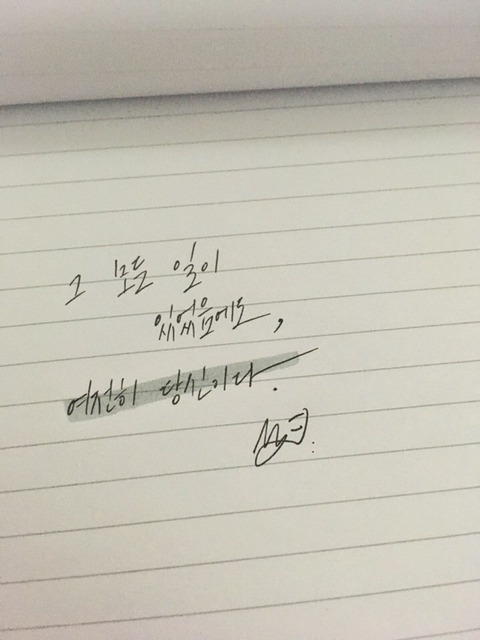 그 모든 일이
있었음에도,
여전히 당신이다.